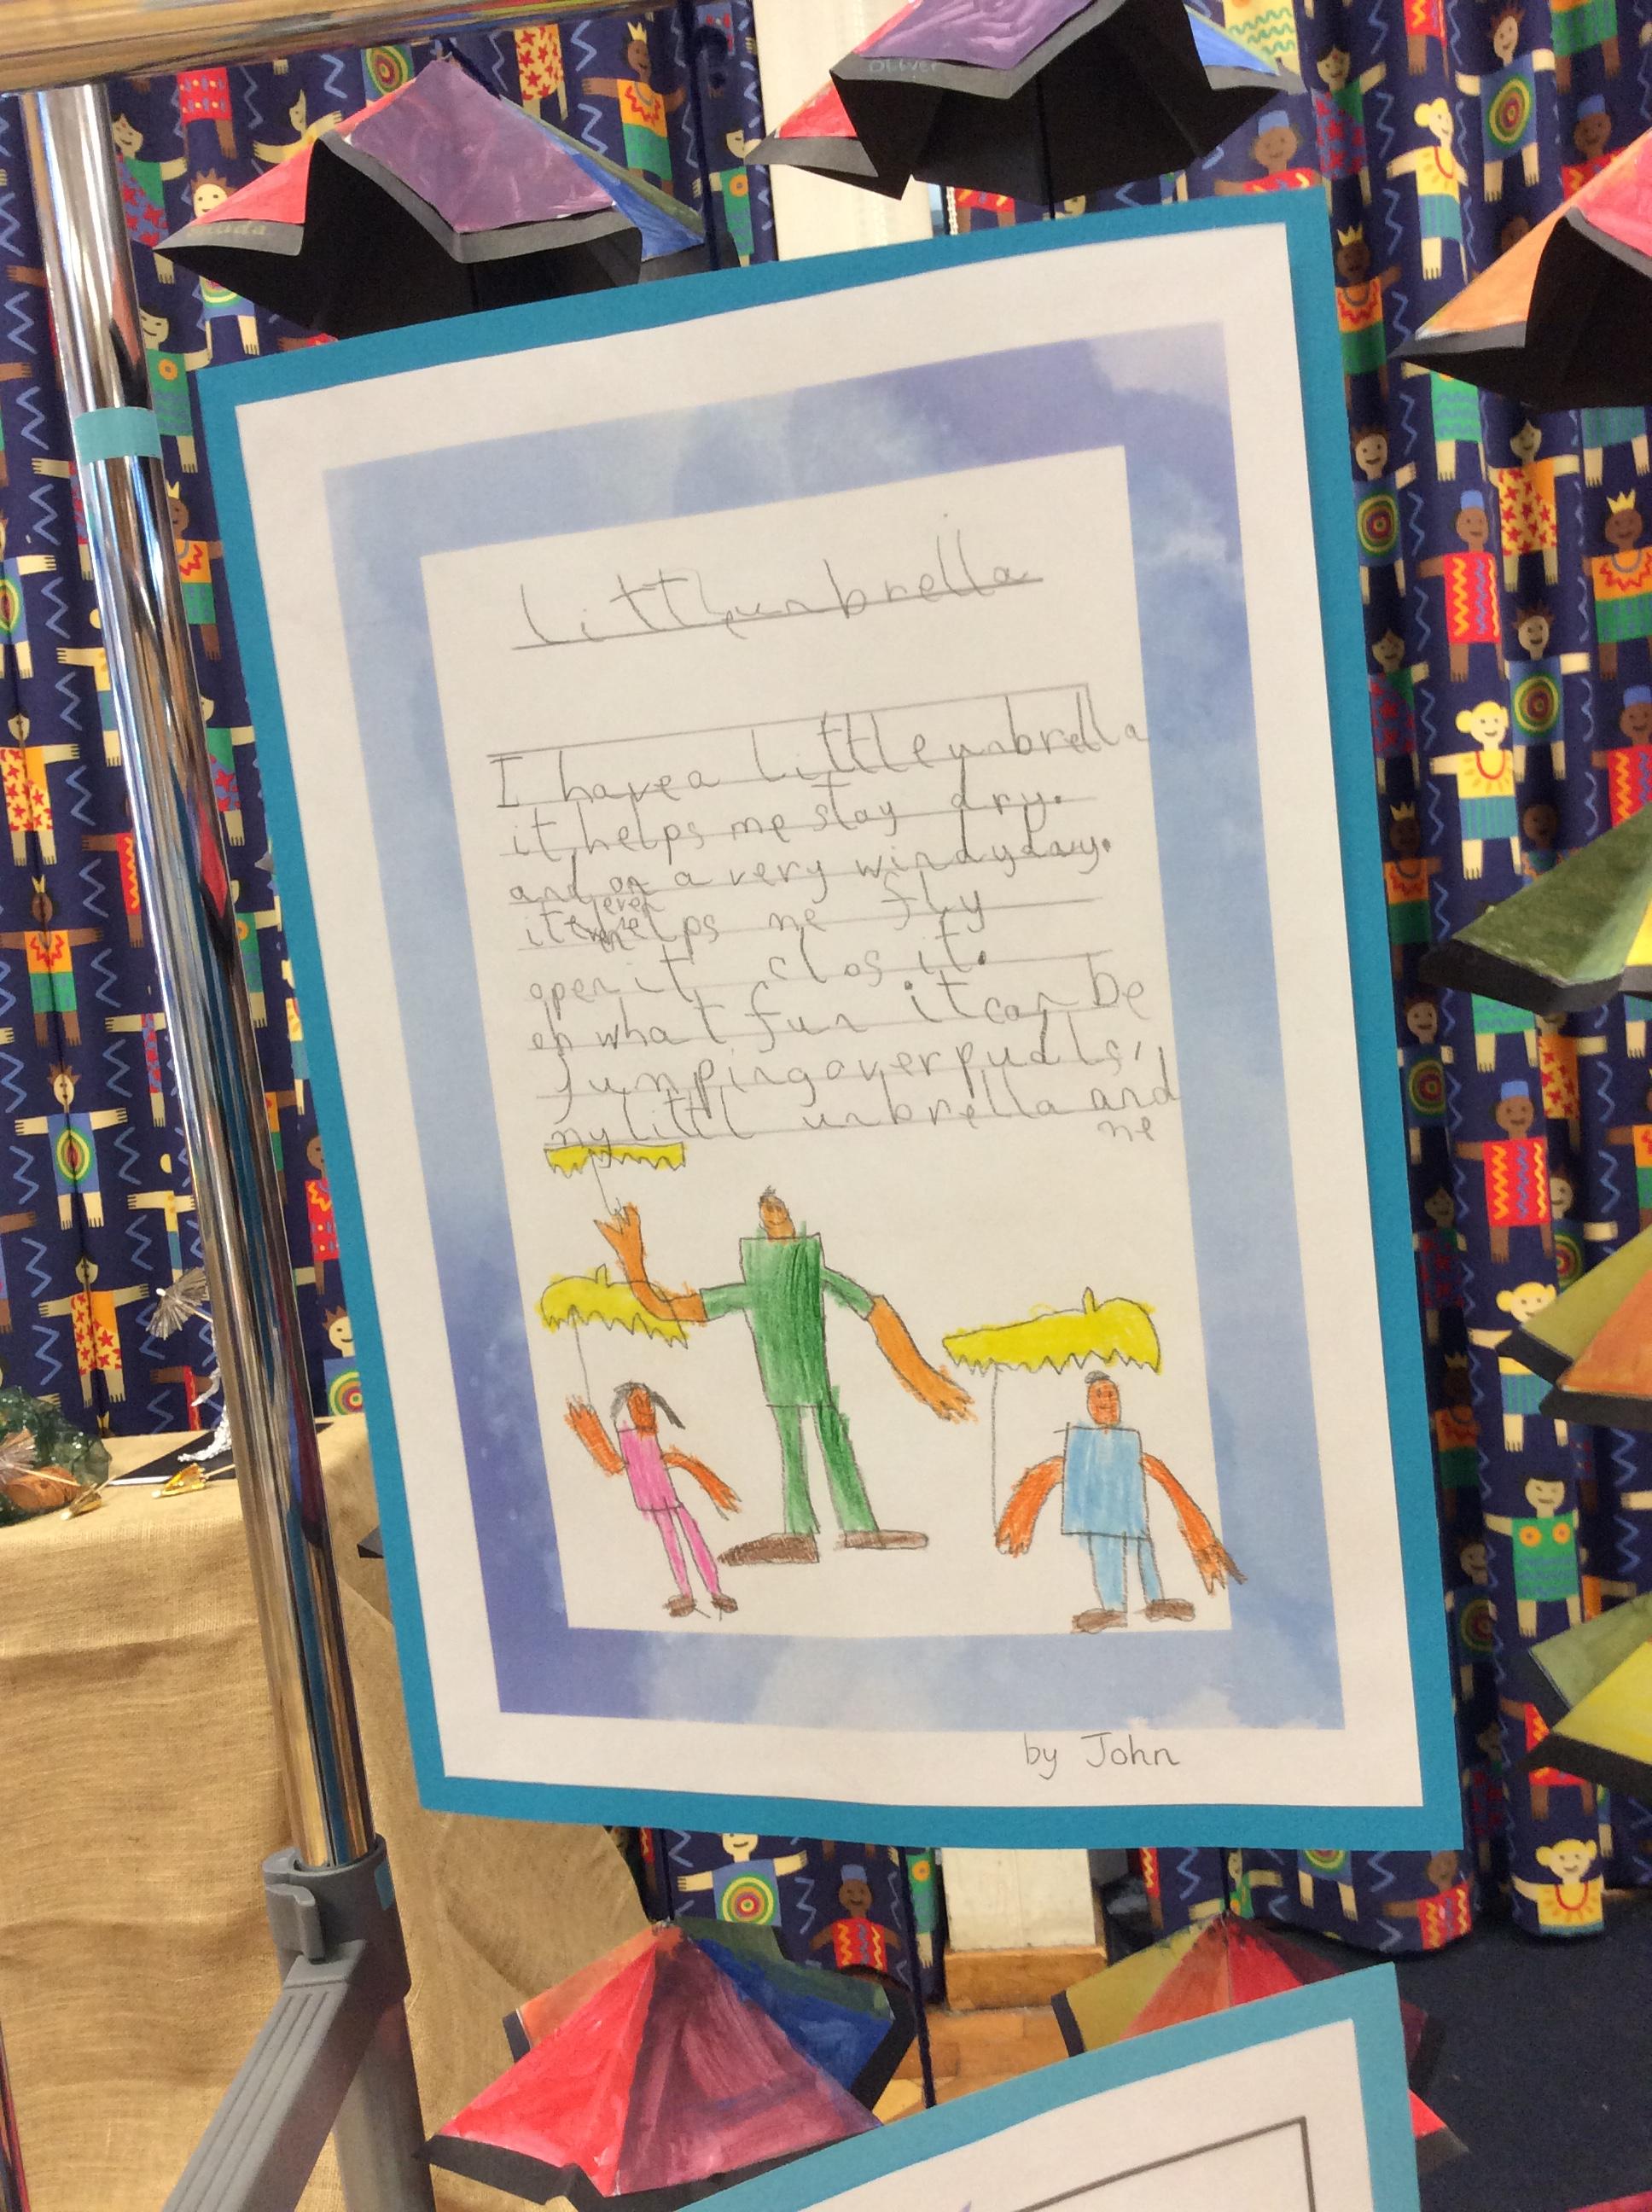 OLIVER
Little unbrella
I have a little unbrella
it helps me stay dry.
and on a very windy day.
it even helps me fly
open it clos it.
oh what fun it can be
Jumping over pudls,
my littl unbrella and
me
by John